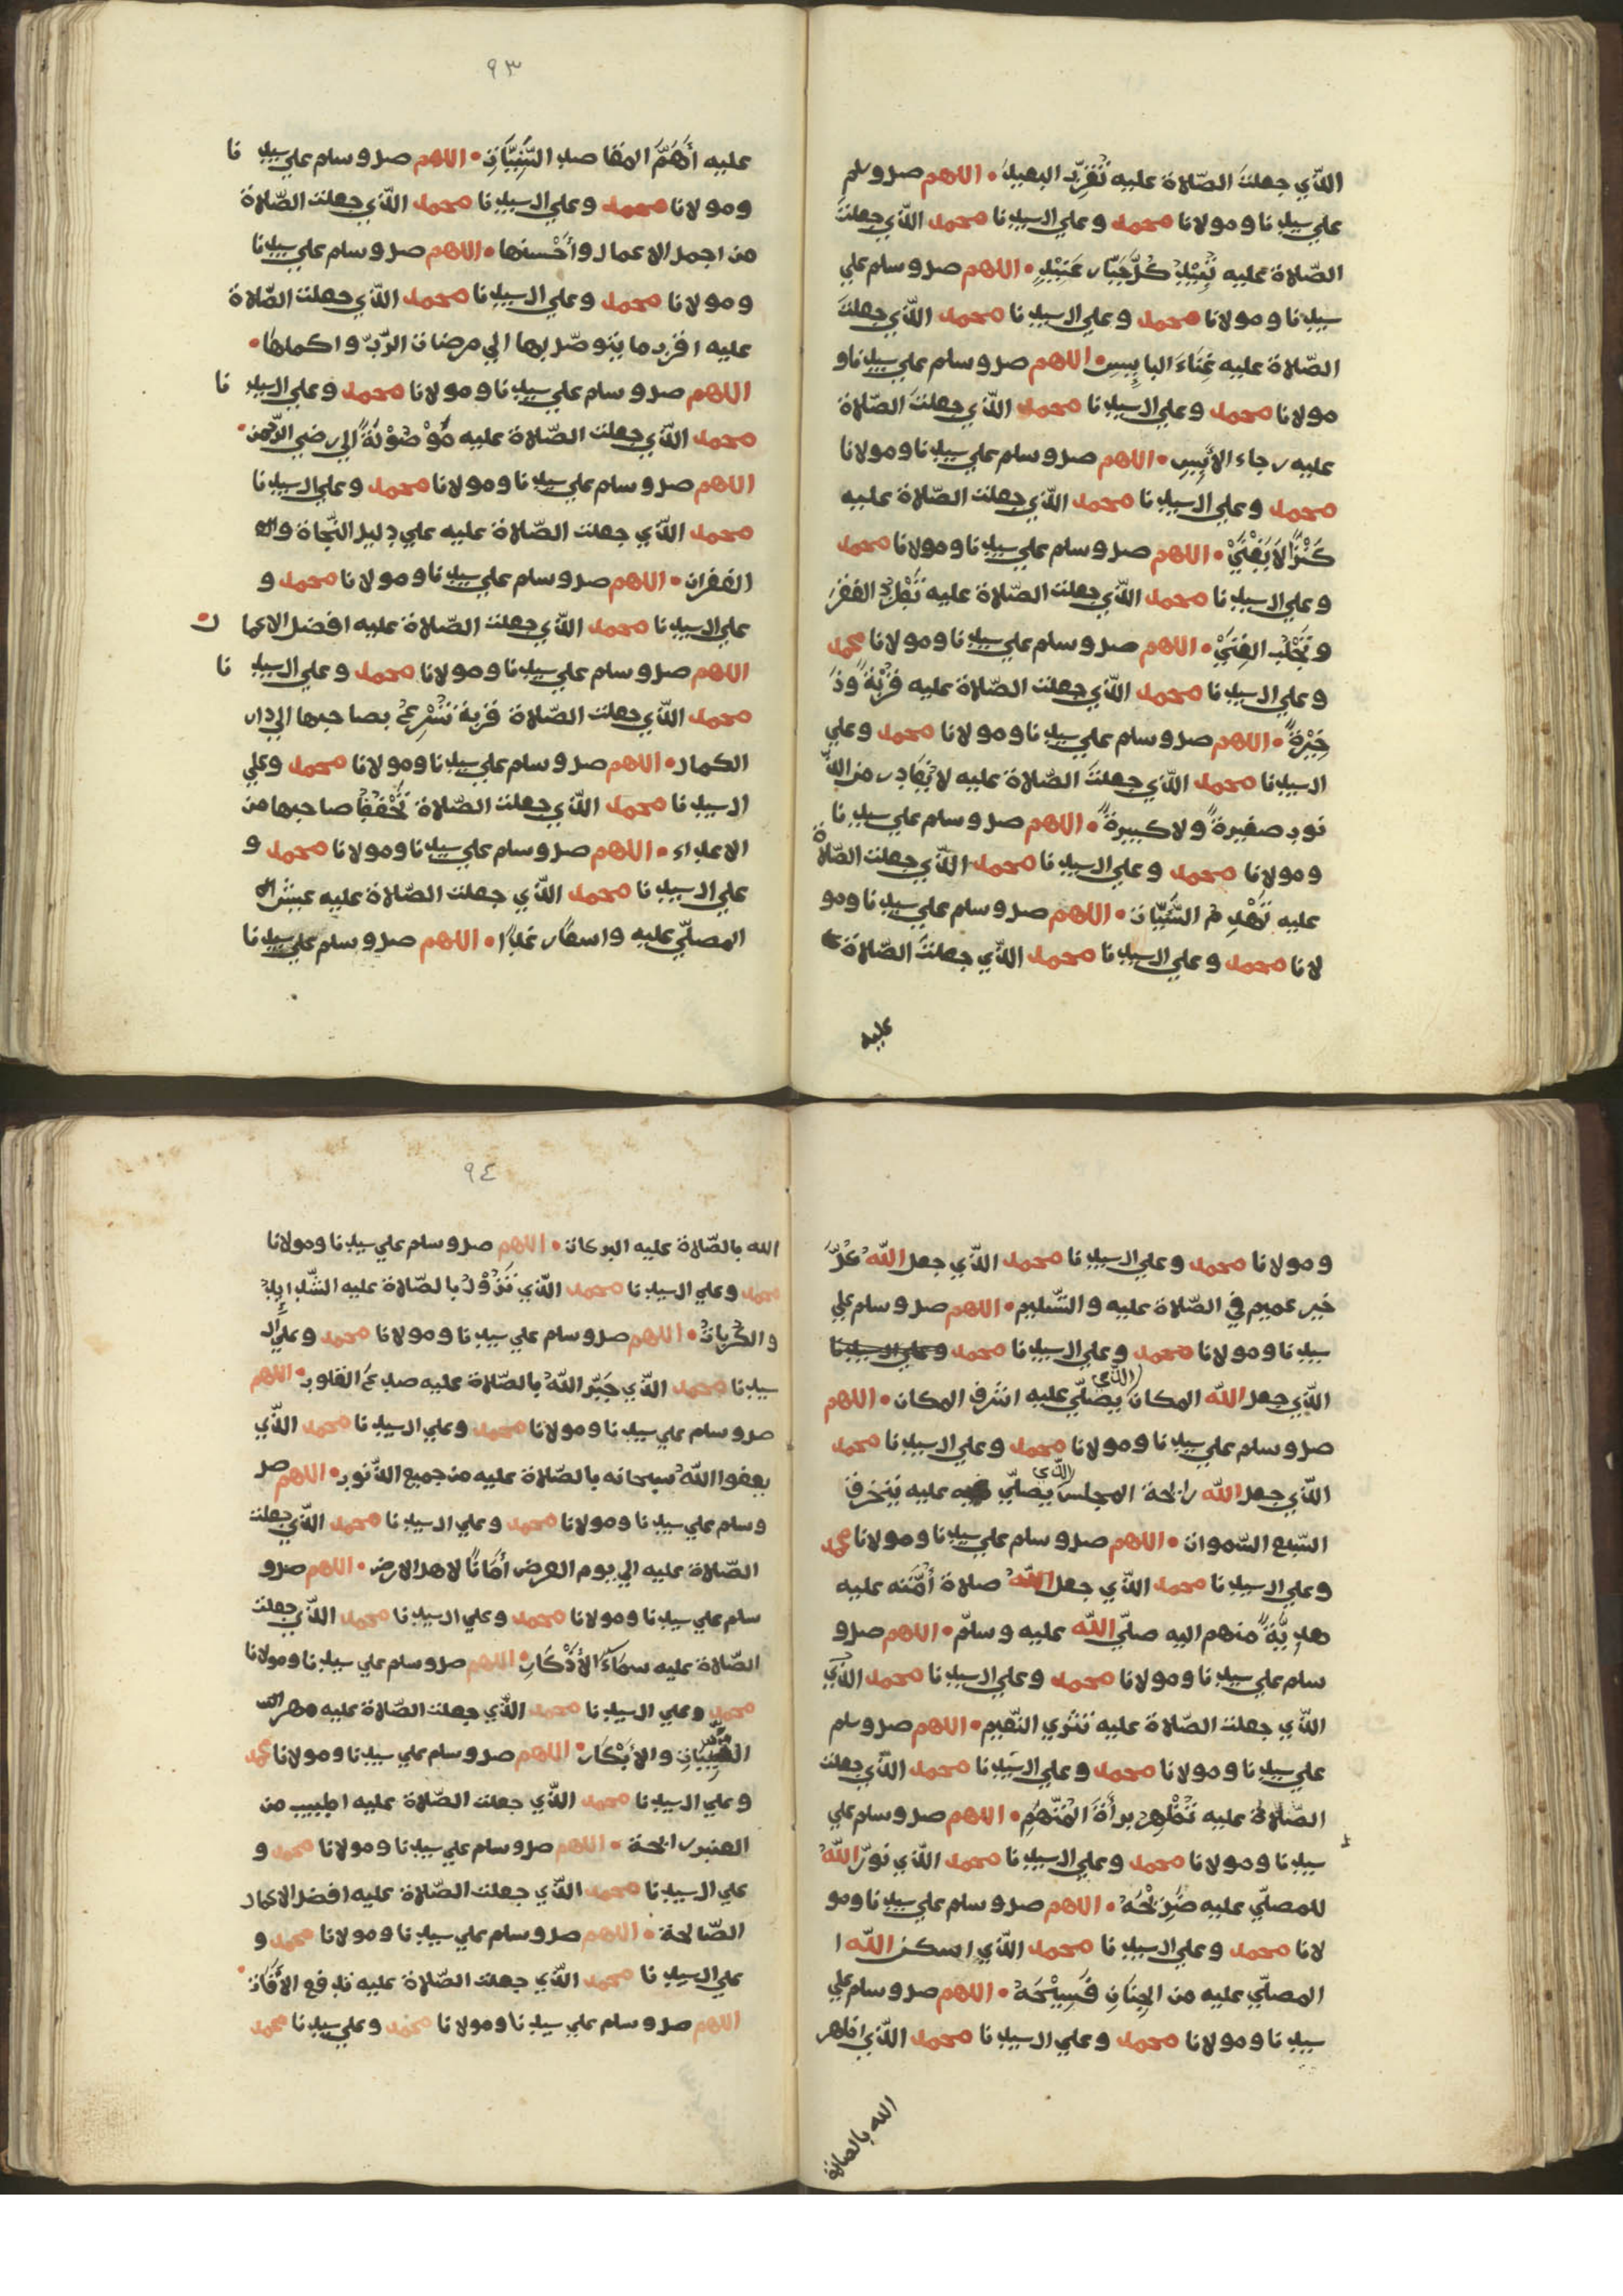 الذّي جعلتَ الصّلاة عليه تُقَرِّبُ البعيدَ • اللهم صل وسلم
علي سيدنا ومولانا محمد وعلي ال سيدنا محمد الذّي جعلتَ
الصّلاة عليه تُبِيْدُ كُلَّ جَبّارٍ عَنِيْدٍ • اللهم صل وسلم علي
سيدنا ومولانا محمد وعلي ال سيدنا محمد الذّي جعلتَ
الصّلاة عليه غِنَاءَ البايِسِ • اللهم صل وسلم علي سيدنا و
مولانا محمد وعلي ال سيدنا محمد الذّي جعلتَ الصّلاة
عليه رجاء الأَيِسِ • اللهم صل وسلم علي سيدنا ومولانا
محمد وعلي ال سيدنا محمد الذّي جعلت الصّلاة عليه
كَنْزًا لاَ يَفْنَيْ • اللهم صل وسلم علي سيدنا ومولانا محمد
وعلي ال سيدنا محمد الذّي جعلت الصّلاة عليه تَطْرُدُ الفقرَ
وتَجْلُبُ الغِنَيْ • اللهم صل وسلم علي سيدنا ومولانا محمد
وعلي ال سيدنا محمد الذّي جعلت الصّلاة عليه قُرْبَةً وذَ
خِيْرَةً • اللهم صل وسلم علي سيدنا ومولانا محمد وعلي
ال سيدنا محمد الذّي جعلتَ الصّلاة عليه لا تُغَادِر من الذّ
نوب صغيرةً ولا كبيرةً • اللهم صل وسلم علي سيدنا
ومولانا محمد وعلي ال سيدنا محمد الذّي جعلت الصّلاة
عليه تَهْدِمُ السَّيِّيَاتِ • اللهم صل وسلم علي سيدنا ومو
لانا محمد وعلي ال سيدنا محمد الذّي جعلتَ الصّلاة
عليه
٩٣
عليه أَهَمَّ المقاصدِ السَّنِيَّاتِ • اللهم صل وسلم علي سيدنا
ومولانا محمد وعلي ال سيدنا محمد الذّي جعلت الصّلاة
من اجمل الاعمال وأَحْسنها • اللهم صل وسلم علي سيدنا
ومولانا محمد وعلي ال سيدنا محمد الذّي جعلت الصّلاة
عليه اقرب ما يتوصّل بها الي مرضات الرّبّ واكملها •
اللهم صل وسلم علي سيدنا ومولانا محمد وعلي ال سيدنا
محمد الذّي جعلت الصّلاة عليه مَوْصُوْلَةً الي رضي الرّحمن •
اللهم صل وسلم علي سيدنا ومولانا محمد وعلي ال سيدنا
محمد الذّي جعلت الصّلاة عليه علي دليل النّجاة وال
الغفران • اللهم صل وسلم علي سيدنا ومولانا محمد و
علي ال سيدنا محمد الذّي جعلت الصّلاة عليه افضل الاعمال •
اللهم صل وسلم علي سيدنا ومولانا محمد وعلي ال سيدنا
محمد الذّي جعلت الصّلاة قربة تُسْرِعُ بصاحبها الي دار
الكمال • اللهم صل وسلم علي سيدنا ومولانا محمد وعلي
ال سيدنا محمد الذّي جعلت الصّلاة تُحْفَظُ صاحبها من
الاعداء • اللهم صل وسلم علي سيدنا ومولانا محمد و
علي ال سيدنا محمد الذّي جعلت الصّلاة عليه عيش ال
المصلّي عليه واسعًا رغدًا • اللهم صل وسلم علي سيدنا
ومولانا محمد وعلي ال سيدنا محمد الذّي جعل اللهُ كُلَّ
خير عميم في الصّلاة عليه والتّسليم • اللهم صل وسلم علي
سيدنا ومولانا محمد وعلي ال سيدنا محمد وعلي ال سيدنا
الذّي جعل الله المكان الذّي يصلّي عليه اشرف المكان • اللهم
صل وسلم علي سيدنا ومولانا محمد وعلي ال سيدنا محمد
الذّي جعل الله رائحة المجلس الذّي يصلّي عليه يتخرق
السّبع السّموات • اللهم صل وسلم علي سيدنا ومولانا محمد
وعلي ال سيدنا محمد الذّي جعل اللهُ صلاة أُمَّته عليه
هديّةً منهم اليه صلّي الله عليه وسلّم • اللهم صل و
سلم علي سيدنا ومولانا محمد وعلي ال سيدنا محمد الذّي
الذّي جعلت الصّلاة عليه تثري النّعيم • اللهم صل وسلم
علي سيدنا ومولانا محمد وعلي ال سيدنا محمد الذّي جعلت
الصّلاة عليه تُظْهِرُ برأَةَ المُتَّهَمِ • اللهم صل وسلم علي
سيدنا ومولانا محمد وعلي ال سيدنا محمد الذّي نوّر اللهُ
للمصلّي عليه ضَرِيْحَهُ • اللهم صل وسلم علي سيدنا ومو
لانا محمد وعلي ال سيدنا محمد الذّي اسكن الله ا
المصلّي عليه من الجِنَانِ فَسِيْحَهُ • اللهم صل وسلم علي
سيدنا ومولانا محمد وعلي ال سيدنا محمد الذّي اظهر
الله بالصلاة
٩٤
الله بالصّلاة عليه البركات • اللهم صل وسلم علي سيدنا ومولانا
محمد وعلي ال سيدنا محمد الذّي تَزُوْلُ بالصّلاة عليه الشّدايِدُ
والكُرُبَاتُ • اللهم صل وسلم علي سيدنا ومولانا محمد وعلي ال
سيدنا محمد الذّي جَبَّر اللهُ بالصّلاة عليه صدع القلوب • اللهم
صل وسلم علي سيدنا ومولانا محمد وعلي ال سيدنا محمد الذّي
يعفوا اللهُ سبحانه بالصّلاة عليه من جميع الذّنوب • اللهم صل
وسلم علي سيدنا ومولانا محمد وعلي ال سيدنا محمد الذّي جعلت
الصّلاة عليه الي يوم العرض أَمَانًا لاهل الارض • اللهم صل و
سلم علي سيدنا ومولانا محمد وعلي ال سيدنا محمد الذّي جعلت
الصّلاة عليه سمَاءَ الأَذْكَارِ • اللهم صل وسلم علي سيدنا ومولانا
محمد وعلي ال سيدنا محمد الذّي جعلت الصّلاة عليه مهر ال
والأَبْكَارِ • اللهم صل وسلم علي سيدنا ومولانا محمد
وعلي ال سيدنا محمد الذّي جعلت الصّلاة عليه اطيب من
العنبر رائحة • اللهم صل وسلم علي سيدنا ومولانا محمد و
علي ال سيدنا محمد الذّي جعلت الصّلاة عليه افضل الاعمال
الصّالحة • اللهم صل وسلم علي سيدنا ومولانا محمد و
علي ال سيدنا محمد الذّي جعلت الصّلاة عليه تدفع الأَفَاتَ •
اللهم صل وسلم علي سيدنا ومولانا محمد وعلي سيدنا محمد